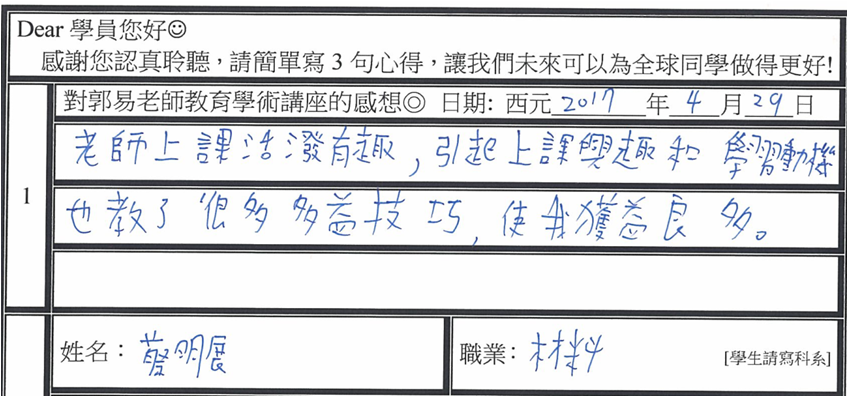 Dear 學員您好☺
感謝您認真聆聽，請簡單寫 3 句心得，讓我們未來可以為全球同學做得更好!
對郭易老師教育學術講座的感想◎ 日期: 西元2017年4月29日
老師上課活潑有趣，引起上課興趣和學習動機
1
也教了很多多益技巧，使我獲益良多。
姓名：蔡明展
職業：材料 [學生請寫科系]